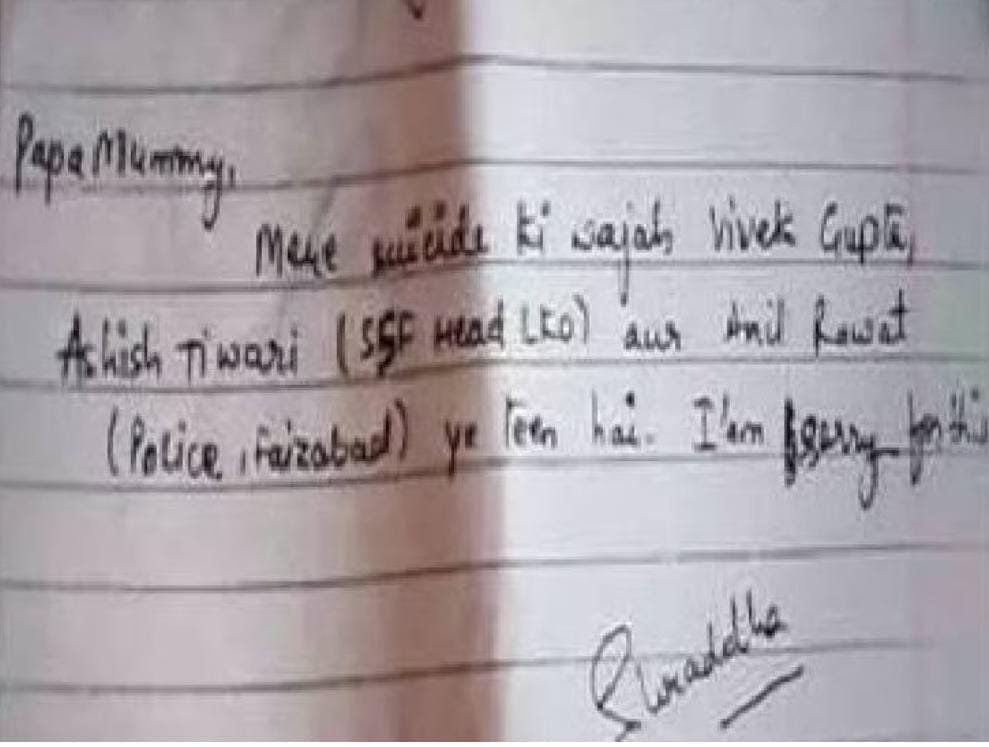 Papa Mummy,
Mere suicide ki wajah Vivek Gupta,
Ashish Tiwari (SSF Head LKO) aur Anil Rawat
(Police, Faizabad) ye teen hai. I'am sorry for this
Shraddha